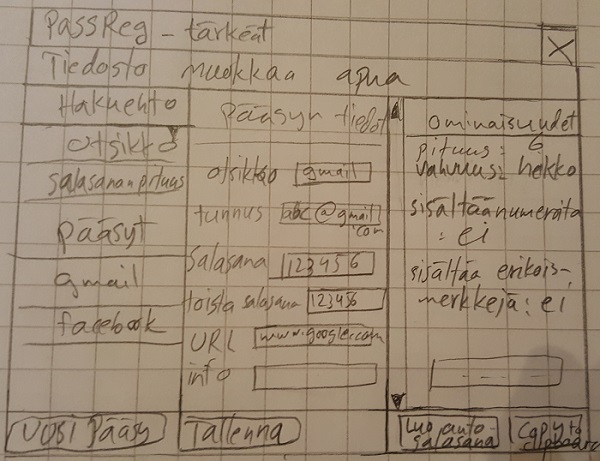 PassReg - tärkeät
X
Tiedosto muokkaa apua
Hakuehto
otsikko
salasanan pituus
pääsyt
gmail
facebook
Uusi Pääsy
Pääsyn tiedot
otsikko gmail
tunnus abc@gmail
.com
Salasana 123456
toista salasana 123456
URL www.google.com
info
Tallenna
ominaisuudet
pituus: 6
vahvuus: heikko
sisältää numeroita
: ei
sisältää erikois-
merkkejä: ei
Luo auto-
salasana
Copy to